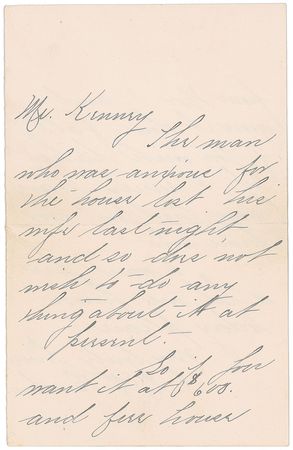 Mr. Kenney
The man
who was anxious for
the house lost his
wife last night
and so does not
wish to do any
thing about it at
present.—
So if you
want it at
and house